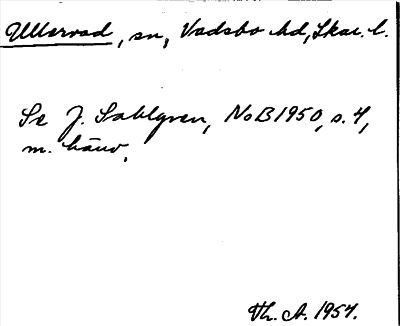 Ullervad, sn, Vadsbo hd, Skar. l.
Se J. Sahlgren, NoB 1950, s. 4,
m. hänv.
Th. A. 1957.